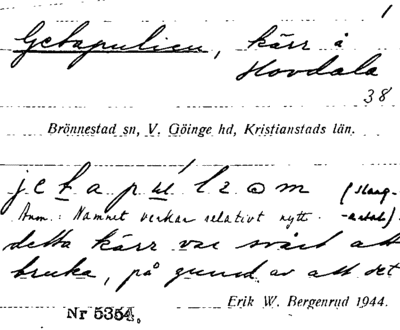 1
Getapulien, kärr å
Hovdala
38
Brönnestad sn, V. Göinge hd, Kristianstads län.
(slang-
Anm.: Namnet verkar relativt nytt. -artat).
detta kärr var svårt att
bruka, på grund av att det
Erik W. Bergenrud 1944.
Nr 5354.